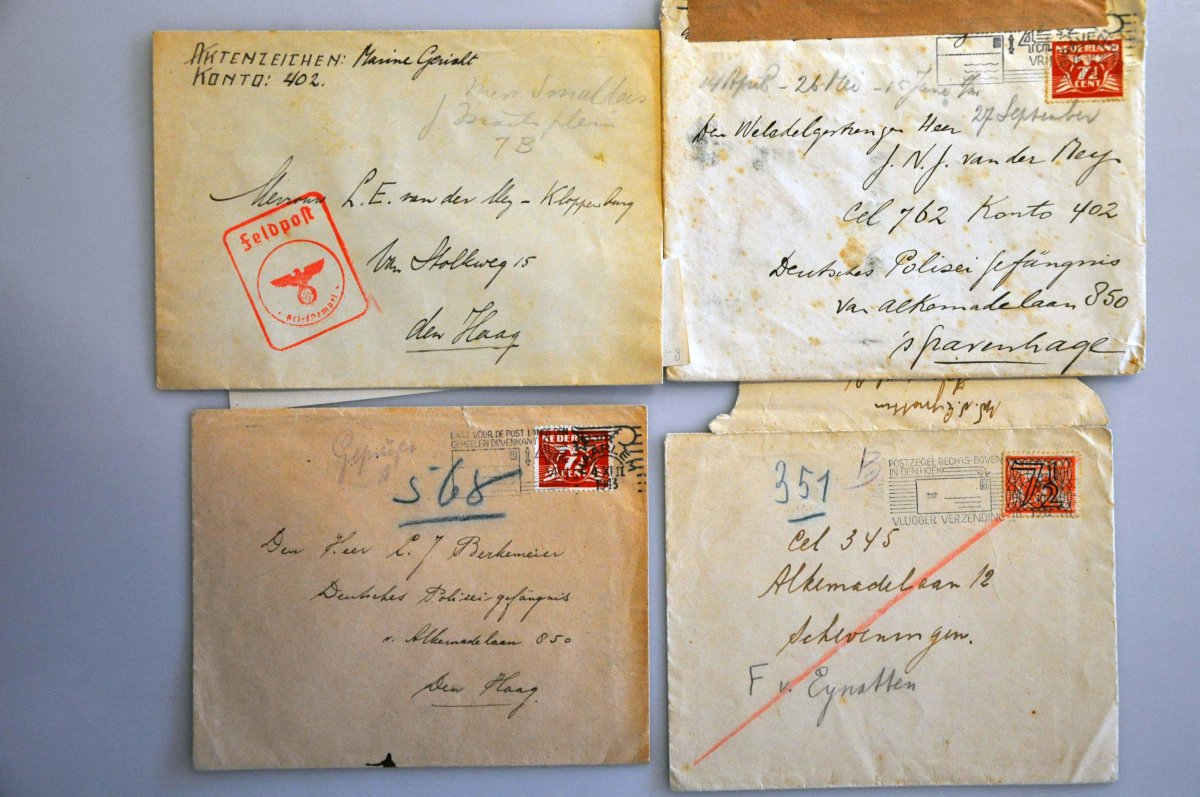 AKTENZEICHEN: Marine Gericht
KONTO: 402.
7B
Mevrouw L. E. van der Mey - Kloppenburg
Van Stolkweg 15
den Haag
Feldpost
Briefstempel
NEDERLAND
7½
CENT
14 April - 26 Mei - 15 Juni
27 September
Den Weledelgestrengen Heer
J. N. J. van der Mey
Cel 762 Konto 402
Deutsches Polizei Gefängnis
van Alkemadelaan 850
's Gravenhage
-8
Geprüft
568
LAAT VOOR DE POST
GEHEELEN BOVENKANT
NEDERLAND
7½
CENT
XII
1943
Den Heer L. J. Berkemeier
Deutsches Polizei gefängnis
v. Alkemadelaan 850
Den Haag
351 B
POSTZEGEL RECHTS-BOVEN
IN DEN HOEK
VLUGGER VERZENDING
7½
Cel 345
Alkemadelaan 12
Scheveningen.
F v. Eynatten